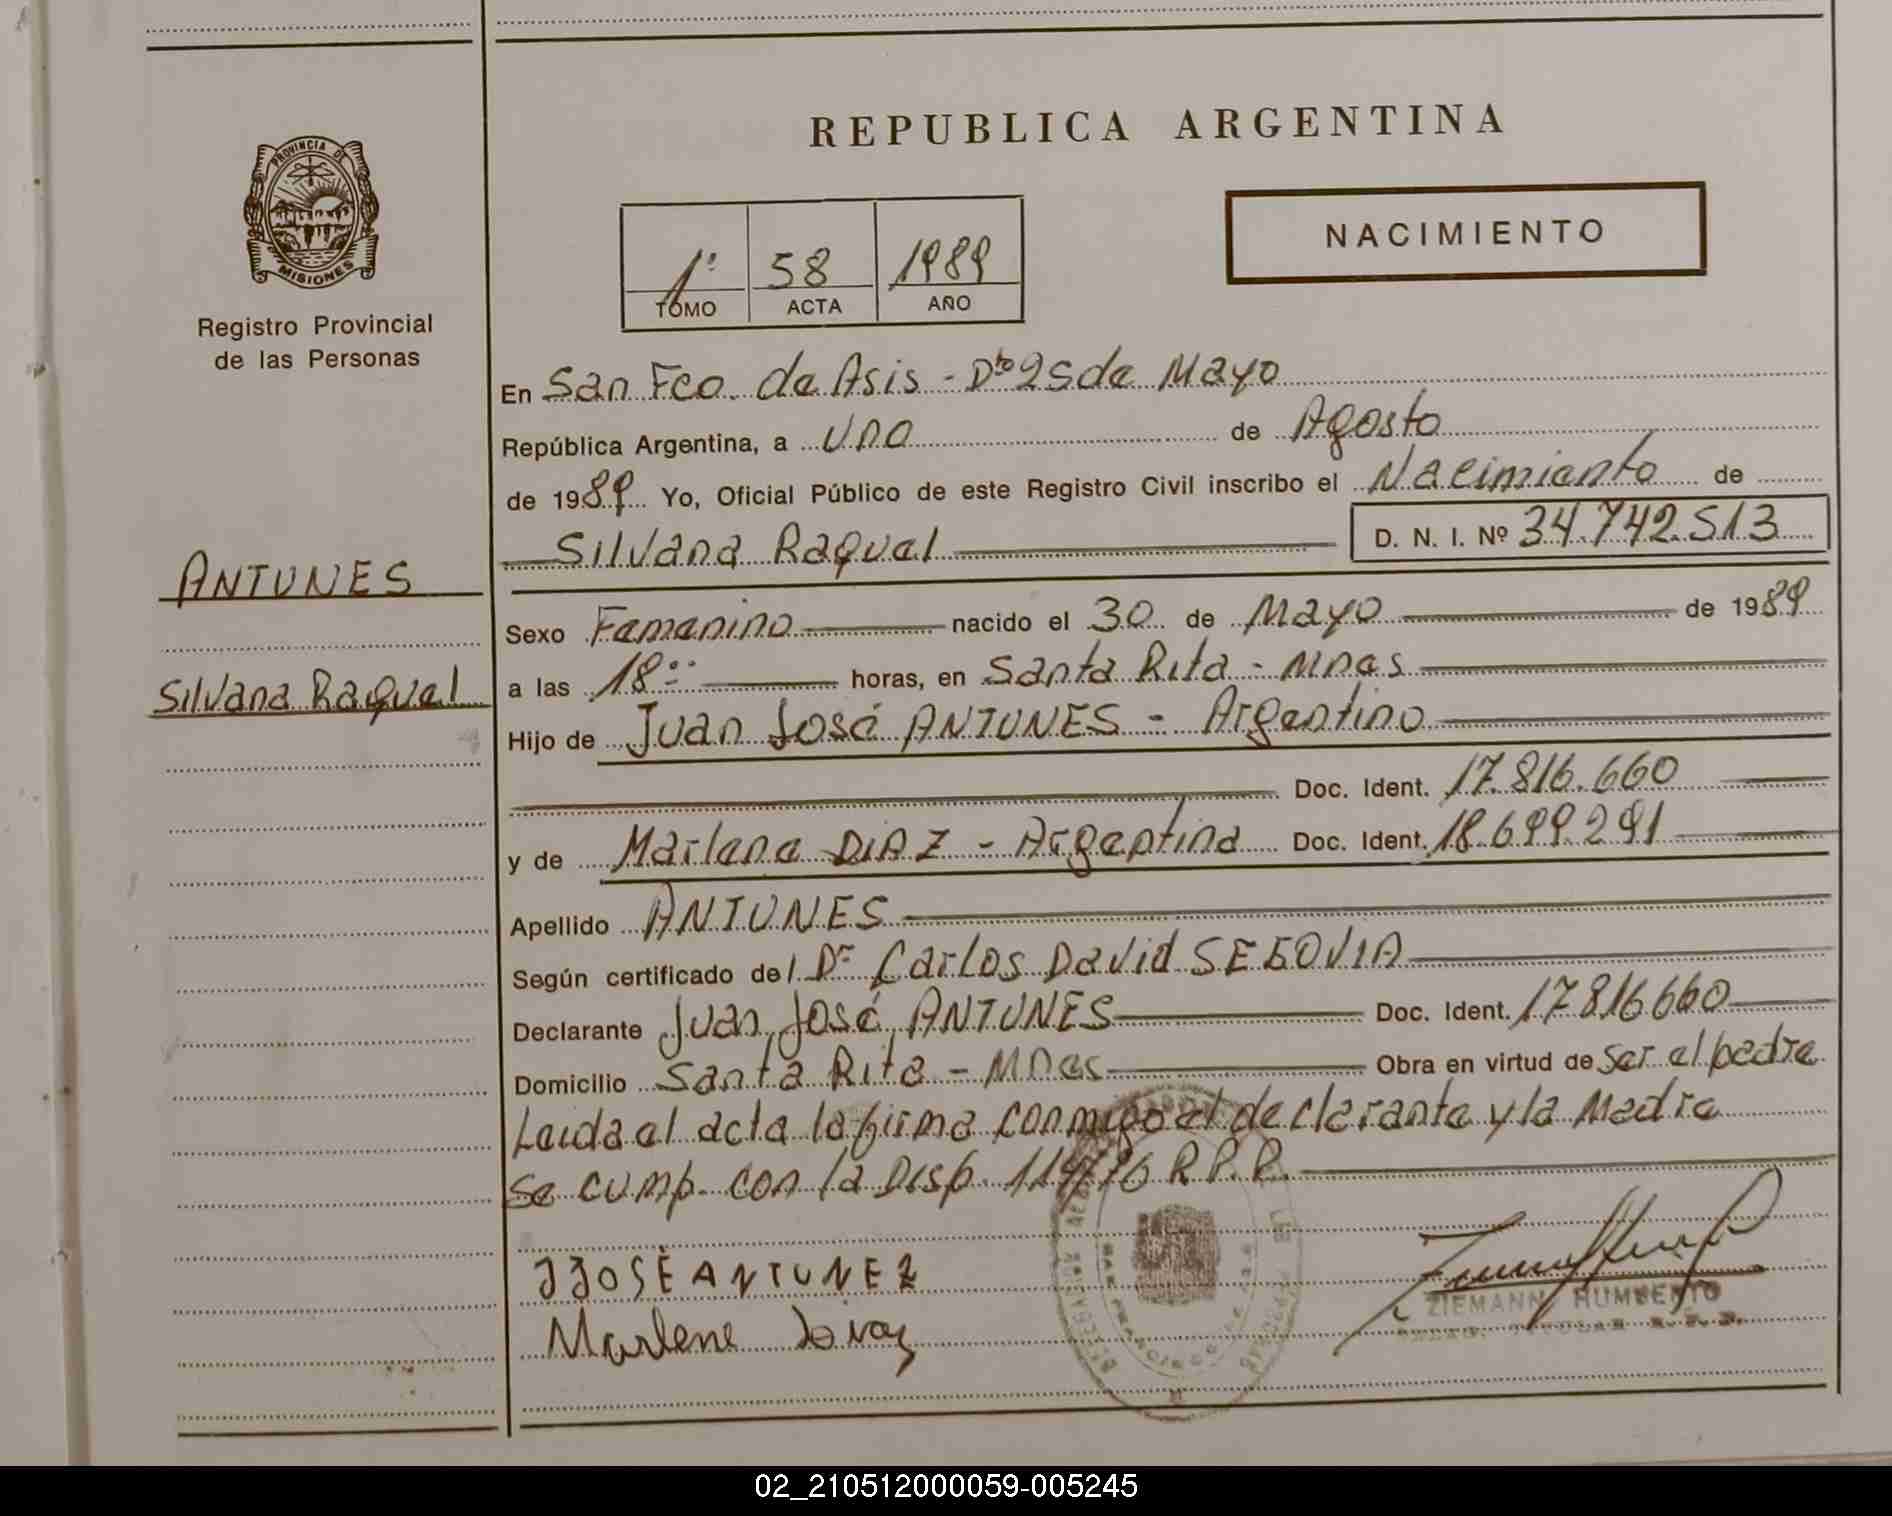 REPUBLICA ARGENTINA
PROVINCIA DE
MISIONES
Registro Provincial
de las Personas
1º 58 1989
TOMO ACTA AÑO
NACIMIENTO
En San Fco. de Asis - Dto 25 de Mayo
República Argentina, a uno de Agosto
de 1989 Yo, Oficial Público de este Registro Civil inscribo el Nacimiento de
Silvana Raquel D. N. I. Nº 34.742.513
ANTUNES
Silvana Raquel
Sexo Femenino nacido el 30 de Mayo de 1989
a las 18:00 horas, en Santa Rita - Mnes
Hijo de Juan José ANTUNES - Argentino
Doc. Ident. 17.816.660
y de Marlene DIAZ - Argentina Doc. Ident. 18.699.291
Apellido ANTUNES
Según certificado del Dr Carlos David SEGOVIA
Declarante Juan José ANTUNES Doc. Ident. 17816660
Domicilio Santa Rita - Mnes Obra en virtud de ser el padre
Leida el acta la firma conmigo el declarante y la Madre
Se cump. con la Disp. R.P.P.
J JOSÉ ANTUNEZ
Marlene Diaz
ZIEMANN HUMBERTO
SAN FRANCISCO DE ASIS
02_210512000059-005245